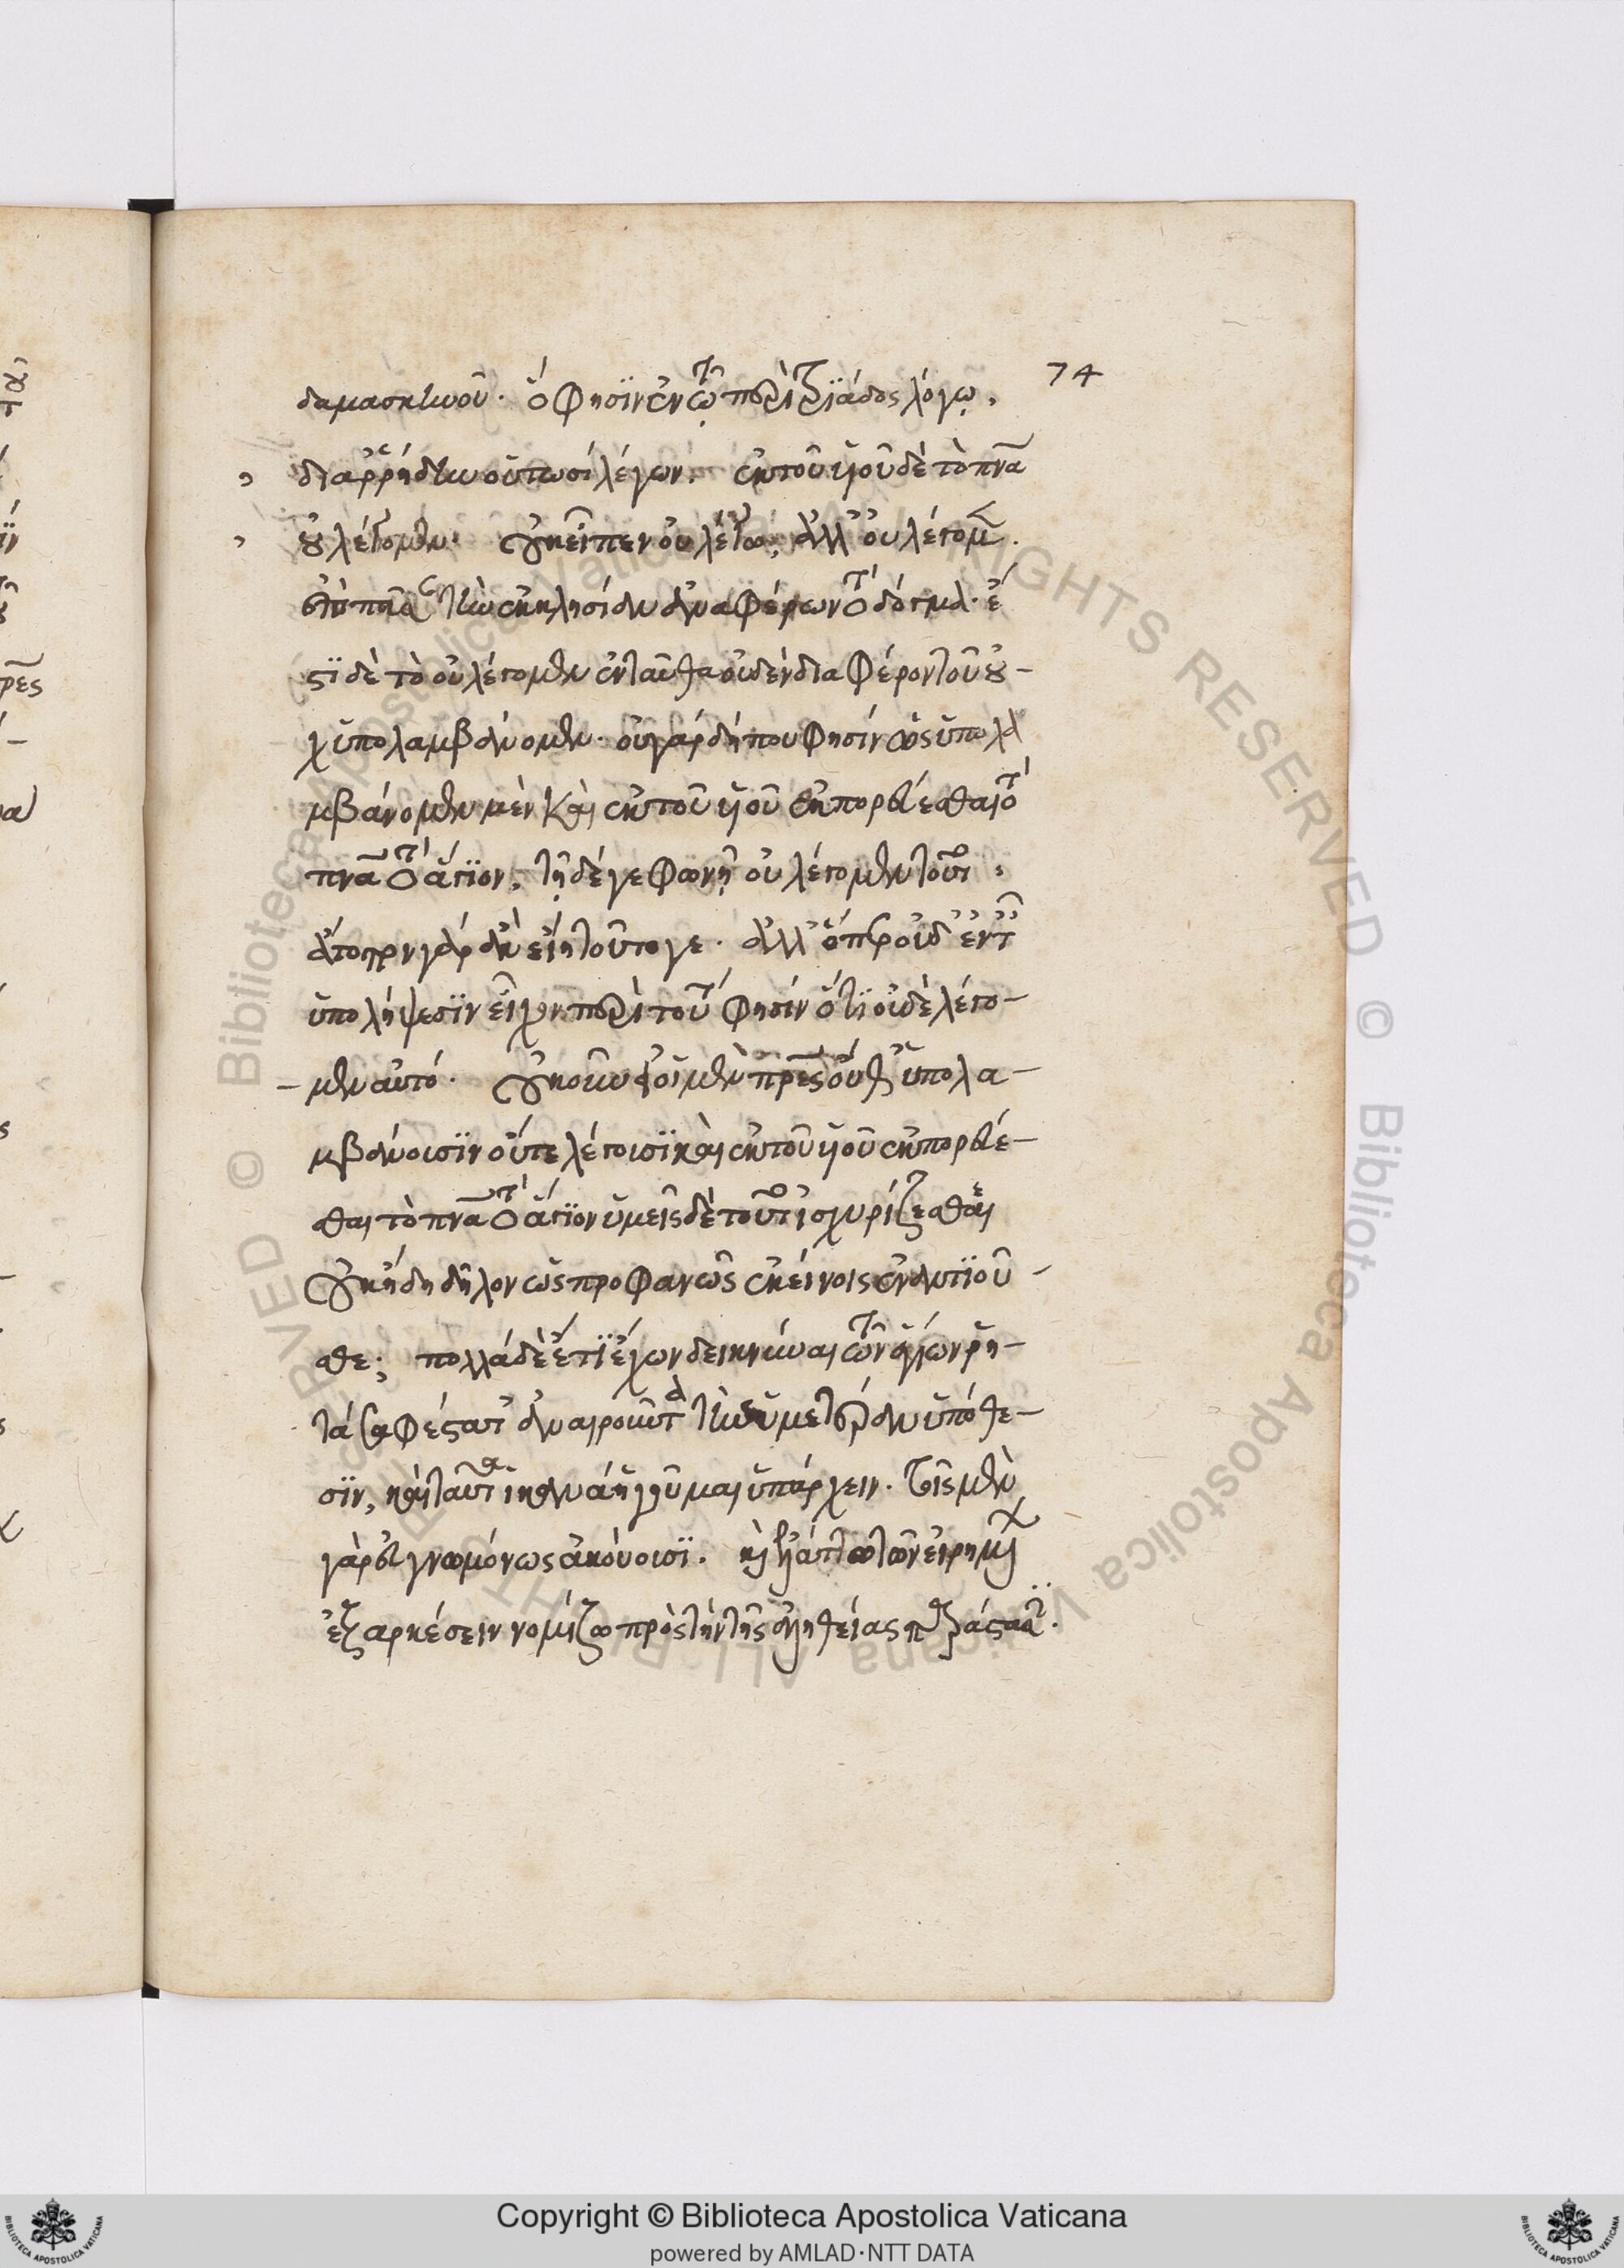 74
δαμασκηνοῦ. ὅ φησὶν ἐν τῷ περὶ τριάδος λόγῳ,
διαρρήδην οὑτωσὶ λέγων. ἐκ τοῦ υἱοῦ δὲ τὸ πνα
οὐ λέγομεν. οὐκ εἶπεν οὐ λέγω, ἀλλ' οὐ λέγομεν.
ἐπὶ πᾶσαν τὴν ἐκκλησίαν ἀναφέρων τὸ δόγμα. ἔ
στι δὲ τὸ οὐ λέγομεν ἐνταῦθα οὐδὲν διαφέρον τοῦ οὐ-
χ ὑπολαμβάνομεν. οὐ γὰρ δήπου φησὶν ὡς ὑπολα
μβάνομεν μὲν καὶ ἐκ τοῦ υἱοῦ ἐκπορεύεσθαι τὸ
πνα τὸ ἅγιον, τῇ δέ γε φωνῇ οὐ λέγομεν τοῦτο,
ἄτοπον γὰρ ἂν εἴη τοῦτό γε. ἀλλ' ὅπερ οὐδ' ἐν ταῖς
ὑπολήψεσιν εἶχον περὶ τούτου φησὶν ὅτι οὐδὲ λέγο-
-μεν αὐτό. οὐκοῦν εἰ οἱ μὲν πρες οὔθ' ὑπολα-
μβάνουσιν οὔτε λέγουσι καὶ ἐκ τοῦ υἱοῦ ἐκπορεύε-
σθαι τὸ πνα τὸ ἅγιον ὑμεῖς δὲ τοῦτο ἰσχυρίζεσθε
οὐκ ἤδη δῆλον ὡς προφανῶς ἐκείνοις ἐναντιοῦ-
σθε; πολλὰ δὲ ἔτι ἔχων δεικνύναι τῶν ἁγίων ῥη-
τὰ σαφέστατα ἀναιροῦντα τὴν ὑμετέραν ὑπόθε-
σιν, καὶ ταῦτα ἱκανὰ ἡγοῦμαι ὑπάρχειν. τοῖς μὲν
γὰρ εὐγνωμόνως ἀκούουσι. καὶ ἓν ἀπὸ τῶν εἰρημένων
ἐξαρκέσειν νομίζω πρὸς τὴν τῆς ἀληθείας παράστασιν.
Copyright © Biblioteca Apostolica Vaticana
powered by AMLAD·NTT DATA